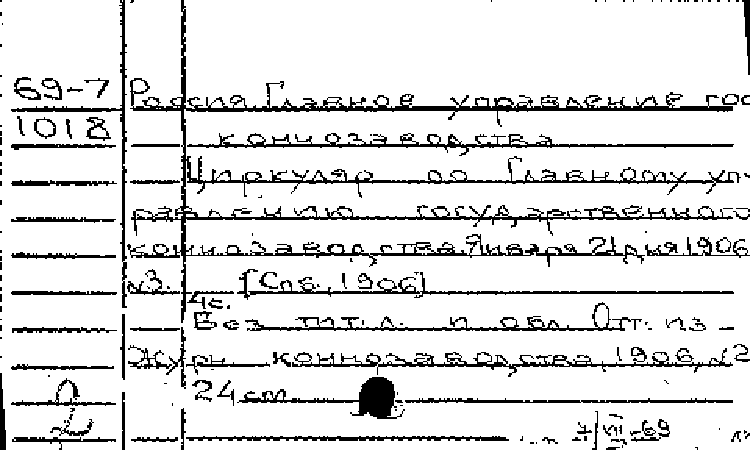 69-7 Россия. Главное управление гос
1018 коннозаводства
Циркуляр по Главному уп-
равлению государственного
коннозаводства. Января 21 дня 1906
№3. [Спб., 1906]
4с.
Без тит. л. и обл. Отт. из
Журн коннозаводства, 1906, №2
24 cm
2
7/VII-69